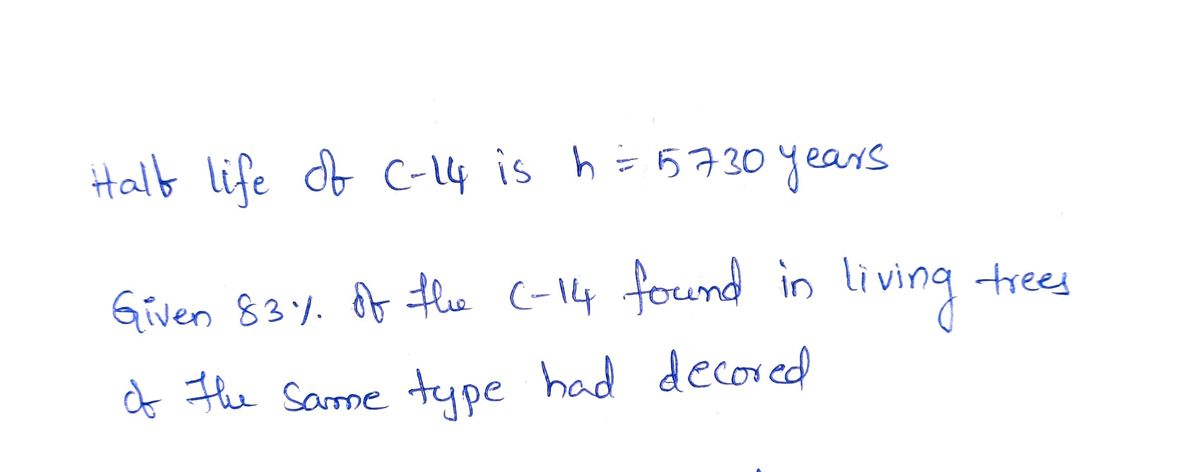 Half life of C-14 is h = 5730 years
Given 83%. of the C-14 found in living trees
of the same type had decored